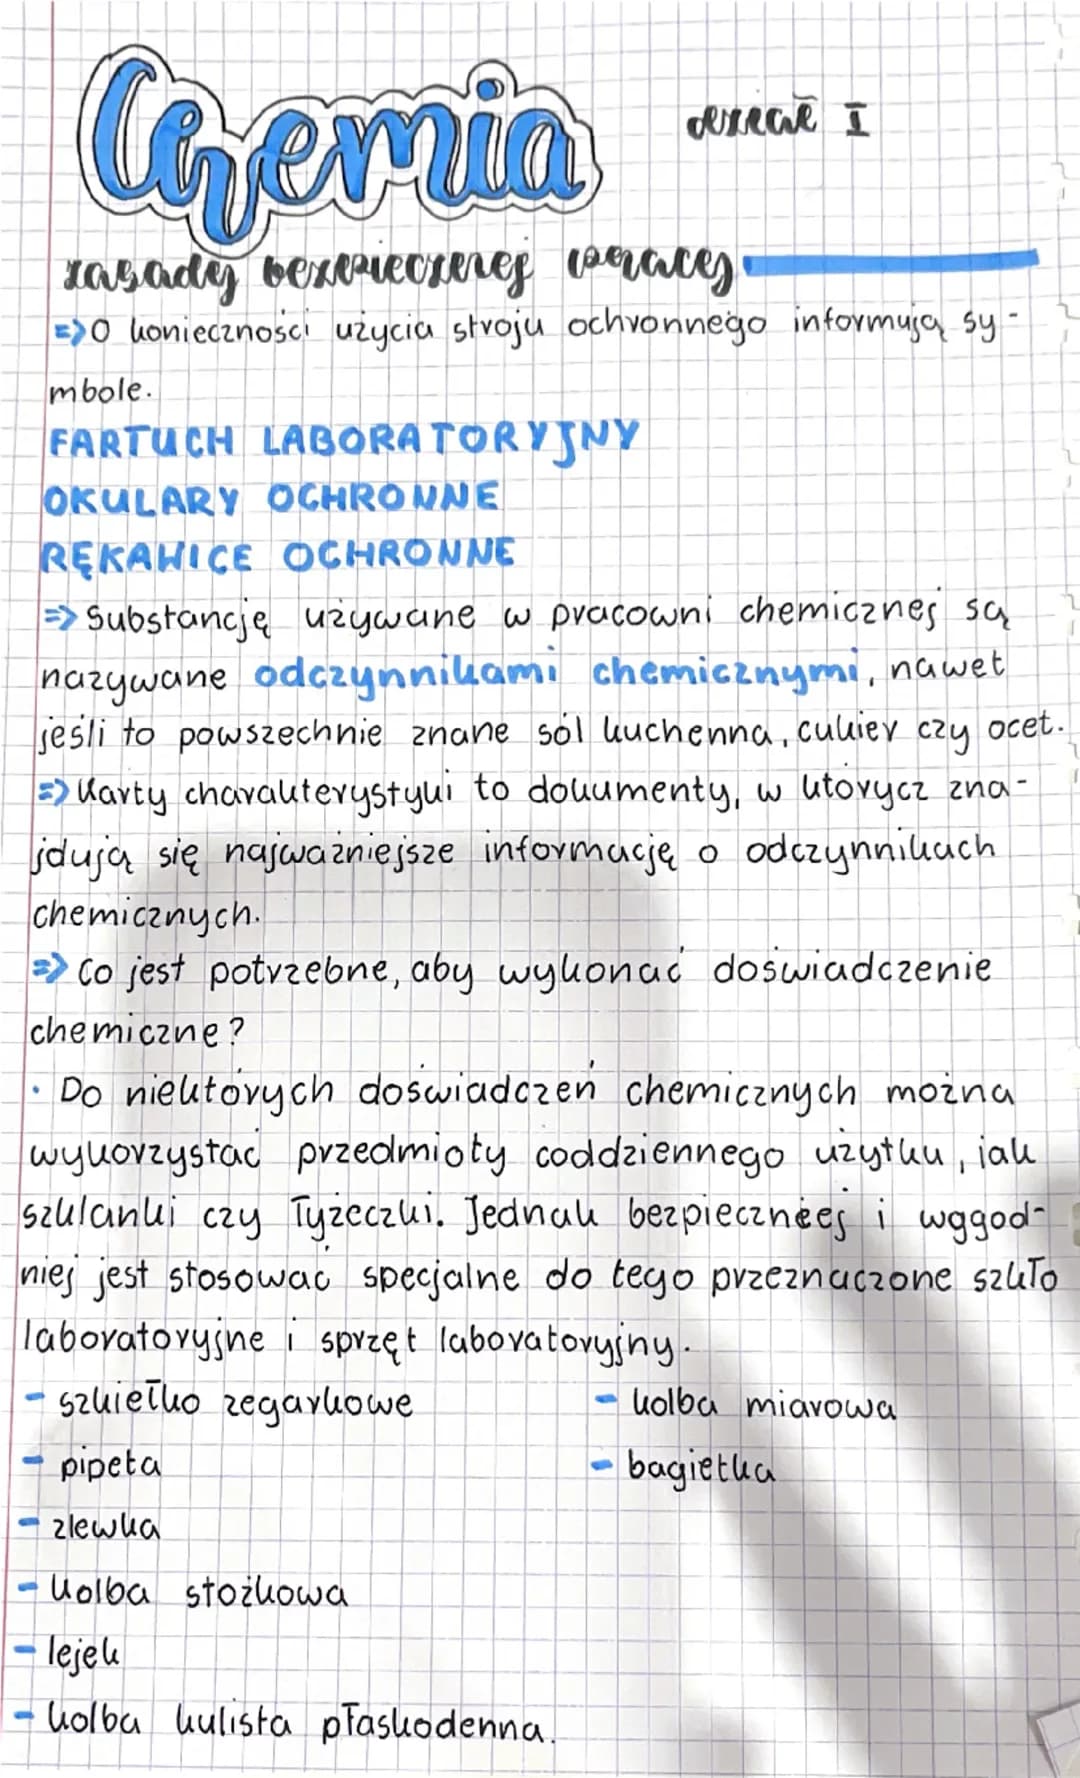 Chemia
dział I
zasady bezpiecznej pracy
=> O konieczności użycia stroju ochronnego informują sy-
mbole.
FARTUCH LABORATORYJNY
OKULARY OCHRONNE
RĘKAWICE OCHRONNE
=> Substancję używane w pracowni chemicznej są
nazywane odczynnikami chemicznymi, nawet
jeśli to powszechnie znane sól kuchenna, cukier czy ocet.
=> Karty charakterystyki to dokumenty, w którycz zna-
jdują się najważniejsze informację o odczynnikach
chemicznych.
=> Co jest potrzebne, aby wykonać doświadczenie
chemiczne?
· Do niektórych doświadczeń chemicznych można
wykorzystać przedmioty coddziennego użytku, jak
szklanki czy łyżeczki. Jednak bezpieczneej i wggod-
niej jest stosować specjalne do tego przeznaczone szkło
laboratoryjne i sprzęt laboratoryjny.
- szkiełko zegarkowe
- pipeta
- zlewka
- kolba stożkowa
- lejek
- kolba kulista płaskodenna.
- kolba miarowa
- bagietka